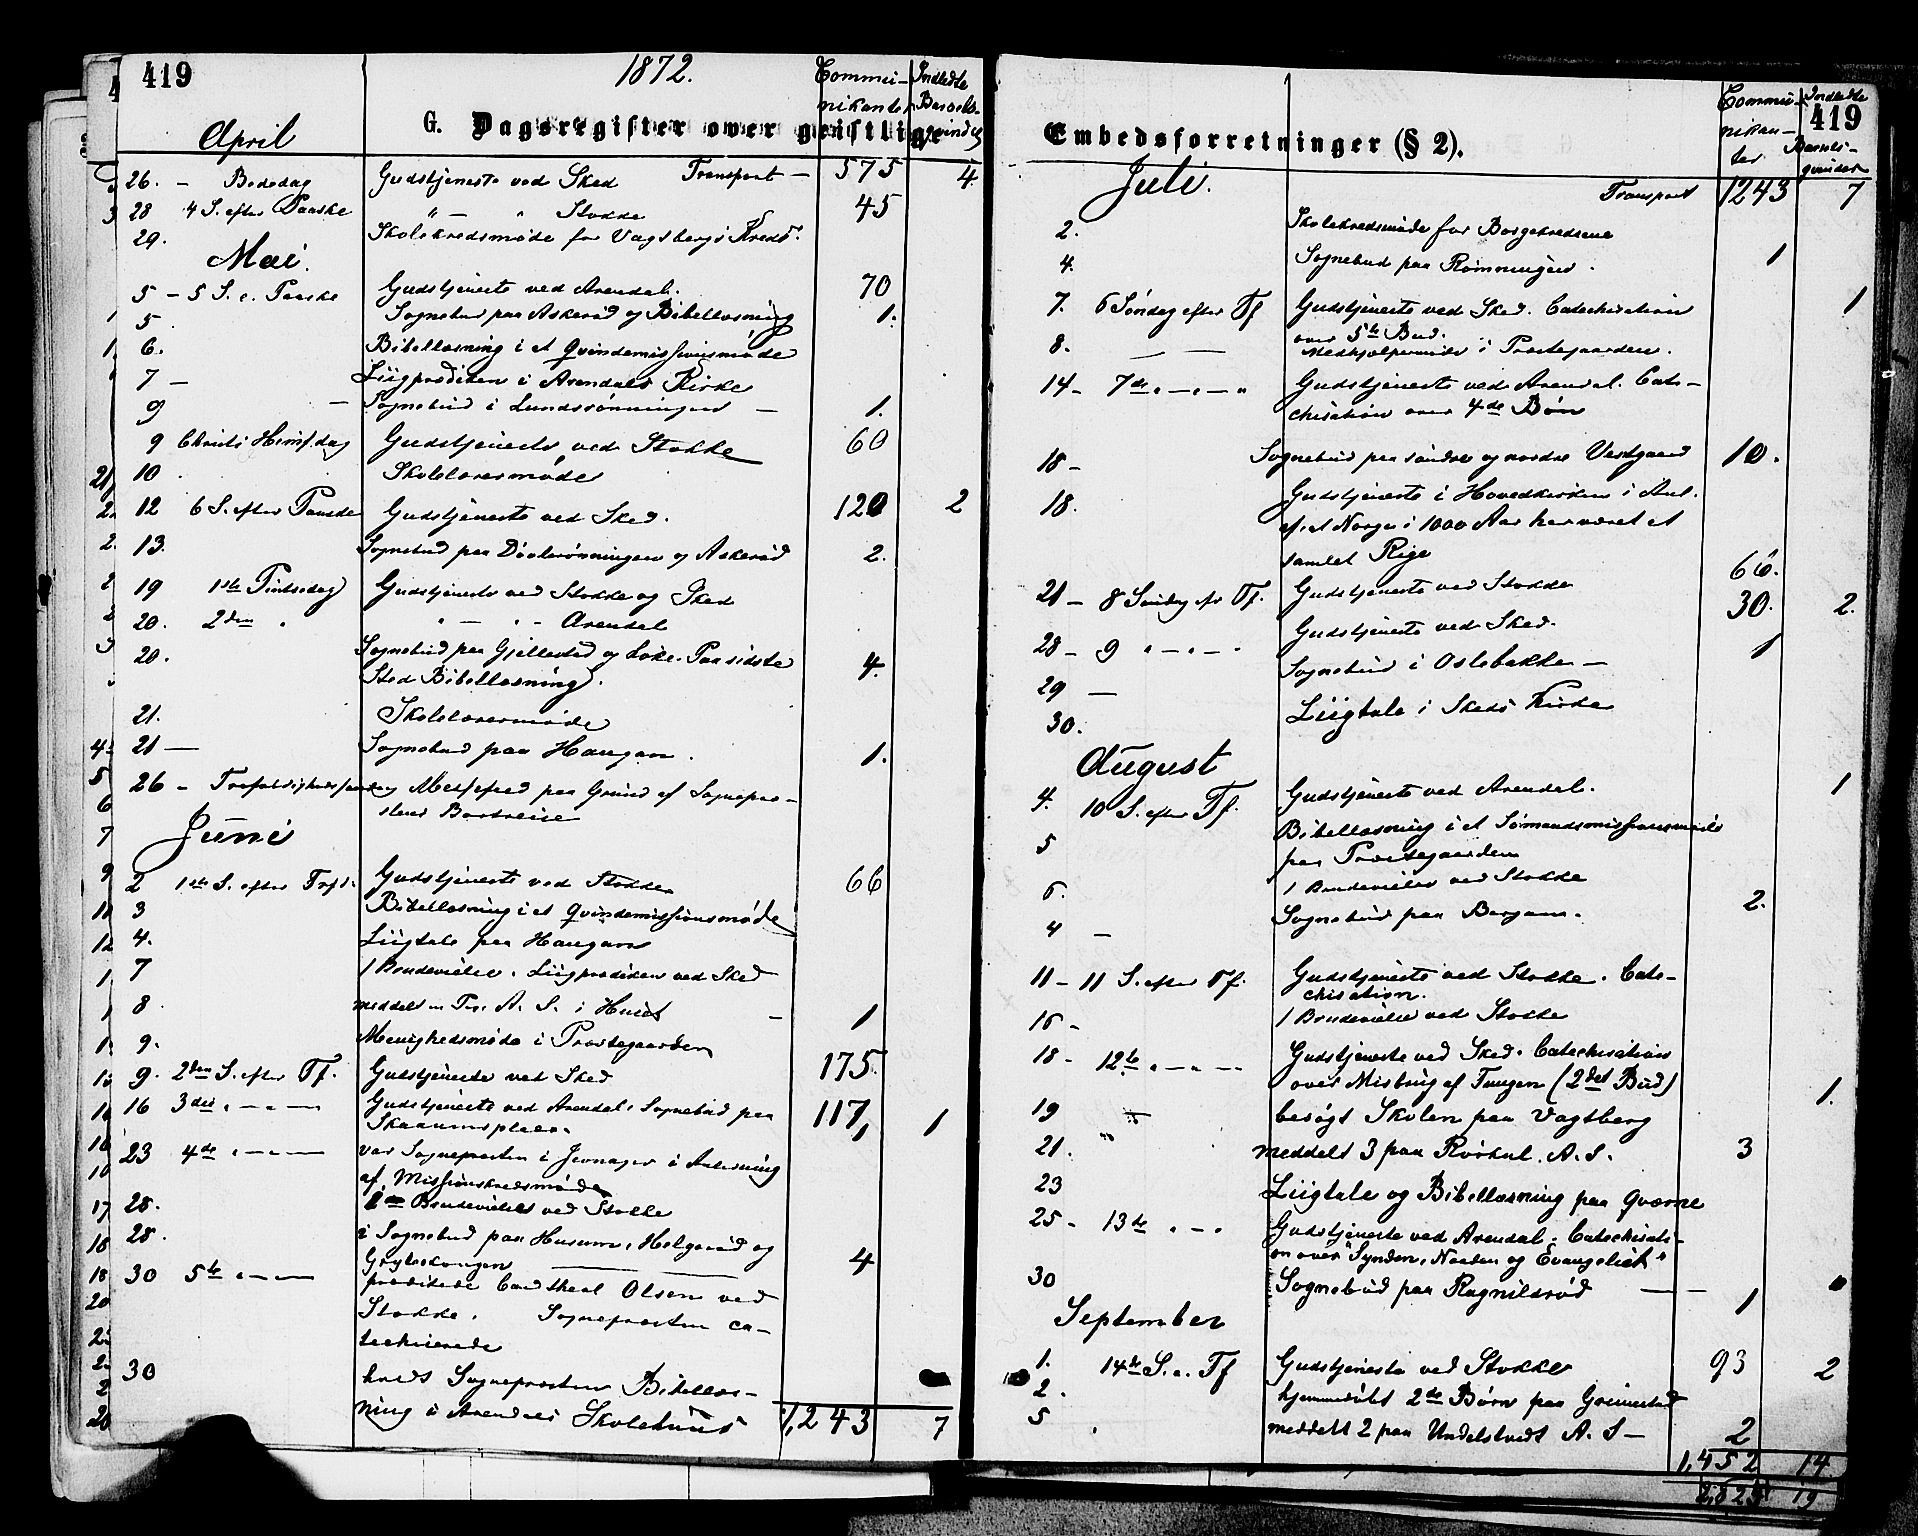 419
1872.
Commu-
nikanter
Indledte
Barsels-
qvinder
G. Dagsregister over geistlige
April
26. - Bededag Gudstjeneste ved Sked Transport - 575 4
28 4 S. efter Paaske " - " Stokke 45
29. Skolekredsmøde for Vagsbergs Kreds.
Mai.
5 - 5 S. e. Paaske Gudstjeneste ved Arendal. 70
5 Sognebud paa Askerød og Bibellæsning 1.
6. Bibellæsning i et Qvindemissionsmøde
7 - Liigprædiken i Arendals Kirke
9 - Sognebud i Lundsrønningen - 1.
9 Christi Himf.dag Gudstjeneste ved Stokke 60
10 Skolelærermøde
12 6 S. efter Paaske Gudstjeneste ved Sked. 120 2
13. Sognebud paa og Askerød 2.
19 1ste Pintsedag Gudstjeneste ved Stokke og Sked
20. 2den " " - " - Arendal
20. Sognebud paa Gjellestad og Paa sidste 4.
Sted Bibellæsning.
21. Skolelærermøde
21 - Sognebud paa Haugan. 1.
26 - Trefoldighedssøndag Messefald paa Grund af Sognepræ-
stens Bortreise
Juni
2 1ste S. efter Tref. Gudstjeneste ved Stokke 66
3 Bibellæsning i et Qvindemissionsmøde
4. Liigtale paa Haugan
7 1 Brudevielse. Liigprædiken ved Sked
8 meddelt A. S. i Huset - 1
9. Menighedsmøde i Præstegaarden
9. 2den S. efter Tf. Gudstjeneste ved Sked 175
16 3die " - " - Gudstjeneste ved Arendal. Sognebud paa 117
1 1
23 4de " - " - var Sognepræsten i Jevnager i Anledning
af Missionskredsmøde
28. Brudevielse ved Stokke
28. i Sognebud paa Husum, Helgerød og
4
30 5te " - " - prædikede Cand theol Olsen ved
Stokke. Sognepræsten ca-
techiserede
30 holdt Sognepræsten Bibellæs-
ning i Arendals Skolehuus 1,243 7
Embedsforretninger (§ 2).
Commu-
nikan-
ter
Indledte
419
Barsels-
qvinder
Juli.
Transport 1243 7
2. Skolekredsmøde for Borgekredsene
4. Sognebud paa Rønningen. 1
7. 6 Søndag efter Tf Gudstjeneste ved Sked. Catechisation 1
over 5te Bud.
8. - - Medhjælpermøde i Præstegaarden.
14 - 7de " - " - " Gudstjeneste ved Arendal. Cate-
chisation over 4de Bøn
18 - Sognebud paa søndre og nordre Vestgaard 10.
18. Gudstjeneste i Hovedkirken i Anl.
af, at Norge i 1000 Aar har været et
samlet Rige
21 - 8 Søndag eft Tf. Gudstjeneste ved Stokke 66.
28 - 9 " - " - " Gudstjeneste ved Sked. 30. 2.
29 - Sognebud i Oslebakke - 1
30. Liigtale i Skeds Kirke
August
4. 10 S. efter Tf. Gudstjeneste ved Arendal. 1
5 Bibellæsning i et Sømandsmissionsmøde
paa Præstegaarden
6. 1 Brudevielse ved Stokke
4 - Sognebud paa Bergan. 2.
11 - 11 S. efter Tf. Gudstjeneste ved Stokke. Cate-
chisation.
16 - 1 Brudevielse ved Stokke
18 - 12te " - " - " Gudstjeneste ved Sked. Catechisation
over Misbrug af Tungen (2det Bud) 1.
19 - besøgt Skolen paa Vagtberg
21. " meddelt 3 paa Rørkul. A. S. 3
23 Liigtale og Bibellæsning paa Qværne
25 - 13de " - " Gudstjeneste ved Arendal. Catechisati-
on over "Synden, Naaden og Evangeliet"
30 Sognebud paa Ragnilsrød - - 1
September
1. 14de S. e. Tf Gudstjeneste ved Stokke 93 2
2. hjemmedøbt 2de Børn paa Grimestad
5 meddelt 2 paa Undelstvedt A. S - 2
1,452 14
19